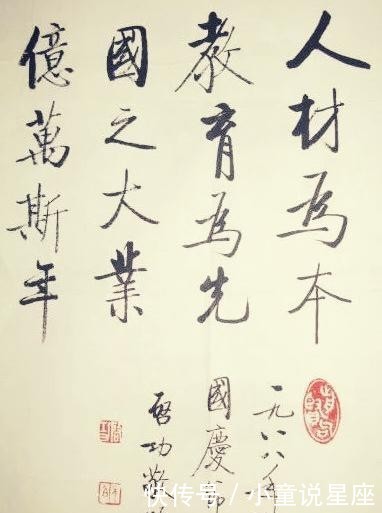 人材為本
教育為先
國之大業
億萬斯年
一九八八年
國慶節
啓功敬
快传号／小童说星座